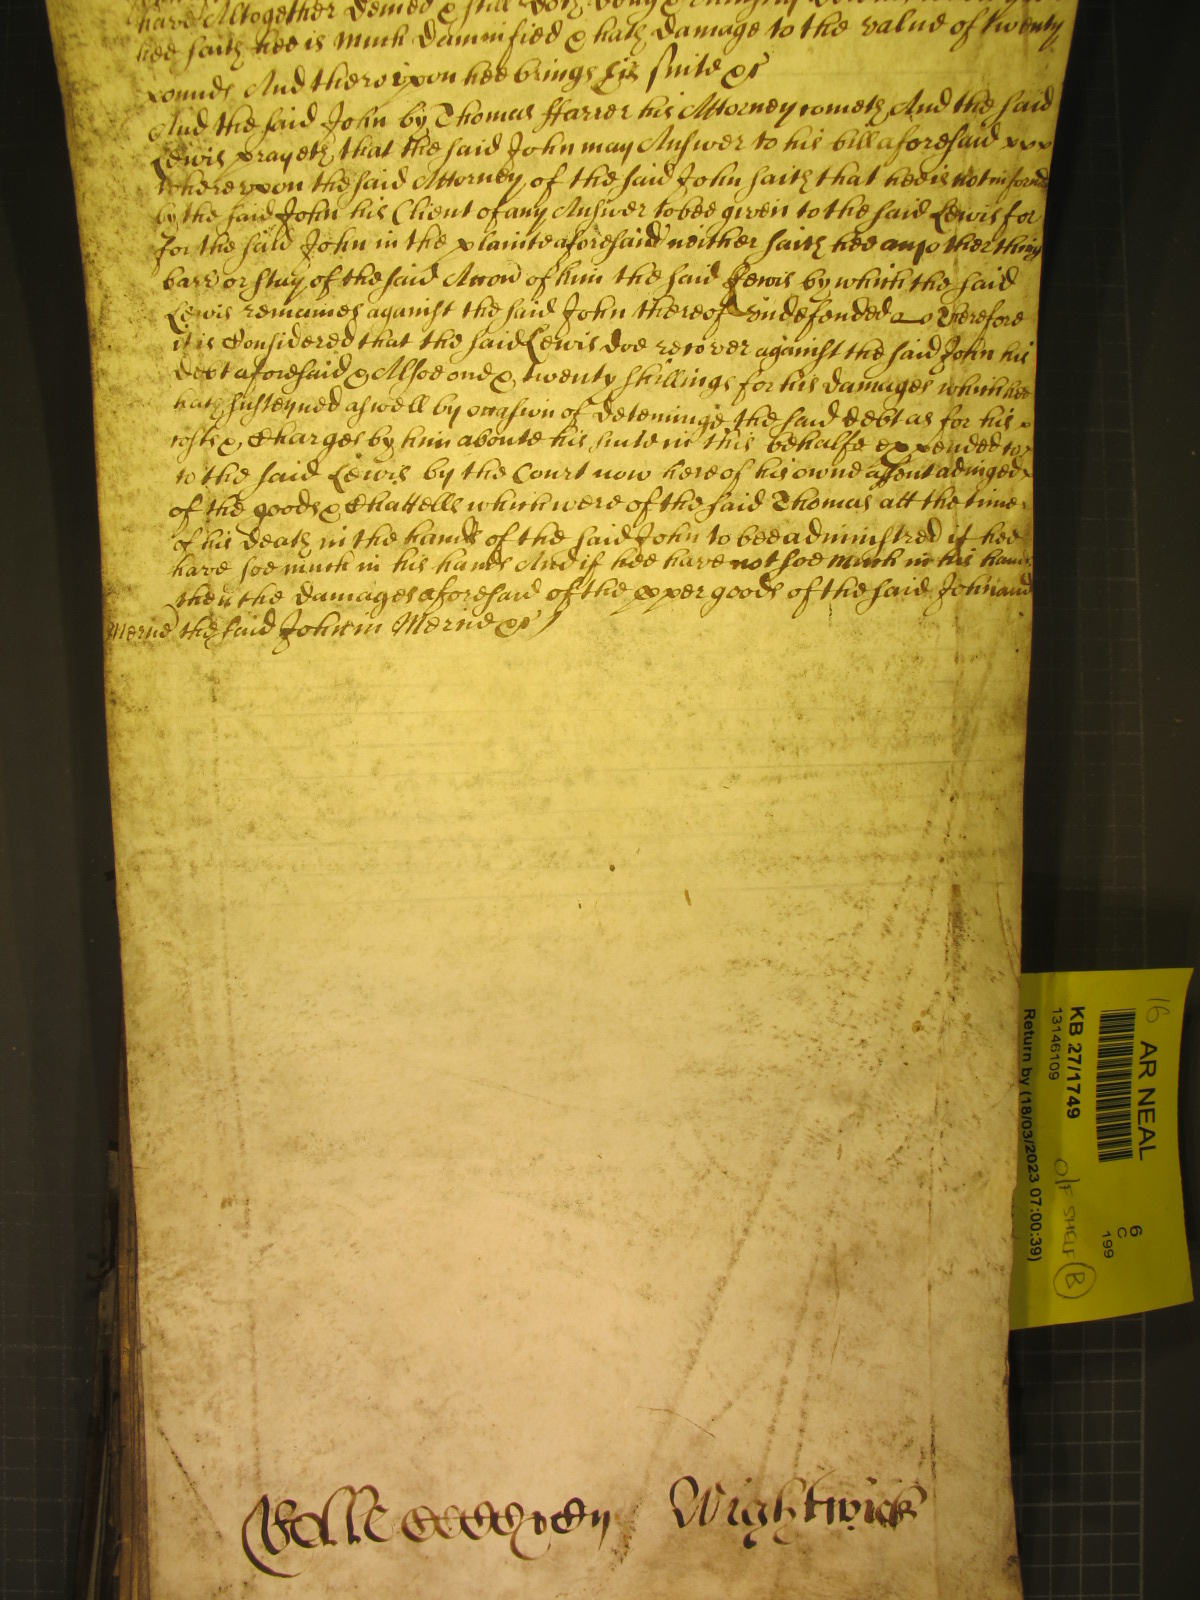 have Altogether denied & still doth deny &
hee saith hee is much damnified & hath damage to the value of twenty
pounds And thereupon hee brings his suite &c
And the said John by Thomas ffarrer his Attorney cometh And the said
Lewis prayeth that the said John may Answer to his bill aforesaid xxx
whereupon the said Attorney of the said John saith that hee is not informed
by the said John his Client of any Answer to bee given to the said Lewis for
for the said John in the plainte aforesaid neither saith hee any other thing
barr or stay of the said Accon of him the said Lewis by which the said
Lewis remaines against the said John thereof undefended Therefore
it is Considered that the said Lewis doe recover against the said John his
debt aforesaid & Alsoe one & twenty shillings for his damages which hee
hath susteyned aswell by occasion of deteininge the said debt as for his
costs & Charges by him aboute his suite in this behalfe expended
to the said Lewis by the Court now here of his owne assent adiudged
of the goods & Chattells which were of the said Thomas att the time
of his death in the hands of the said John to bee administred if hee
have soe much in his hands And if hee have not soe much in his hands
then the damages aforesaid of the proper goods of the said John and
Mercie the said John in Mercie &c
Wightwick
16
AR NEAL
6
C
199
KB 27/1749
13146109
O/F SHELF B
Return by (18/03/2023 07:00:39)